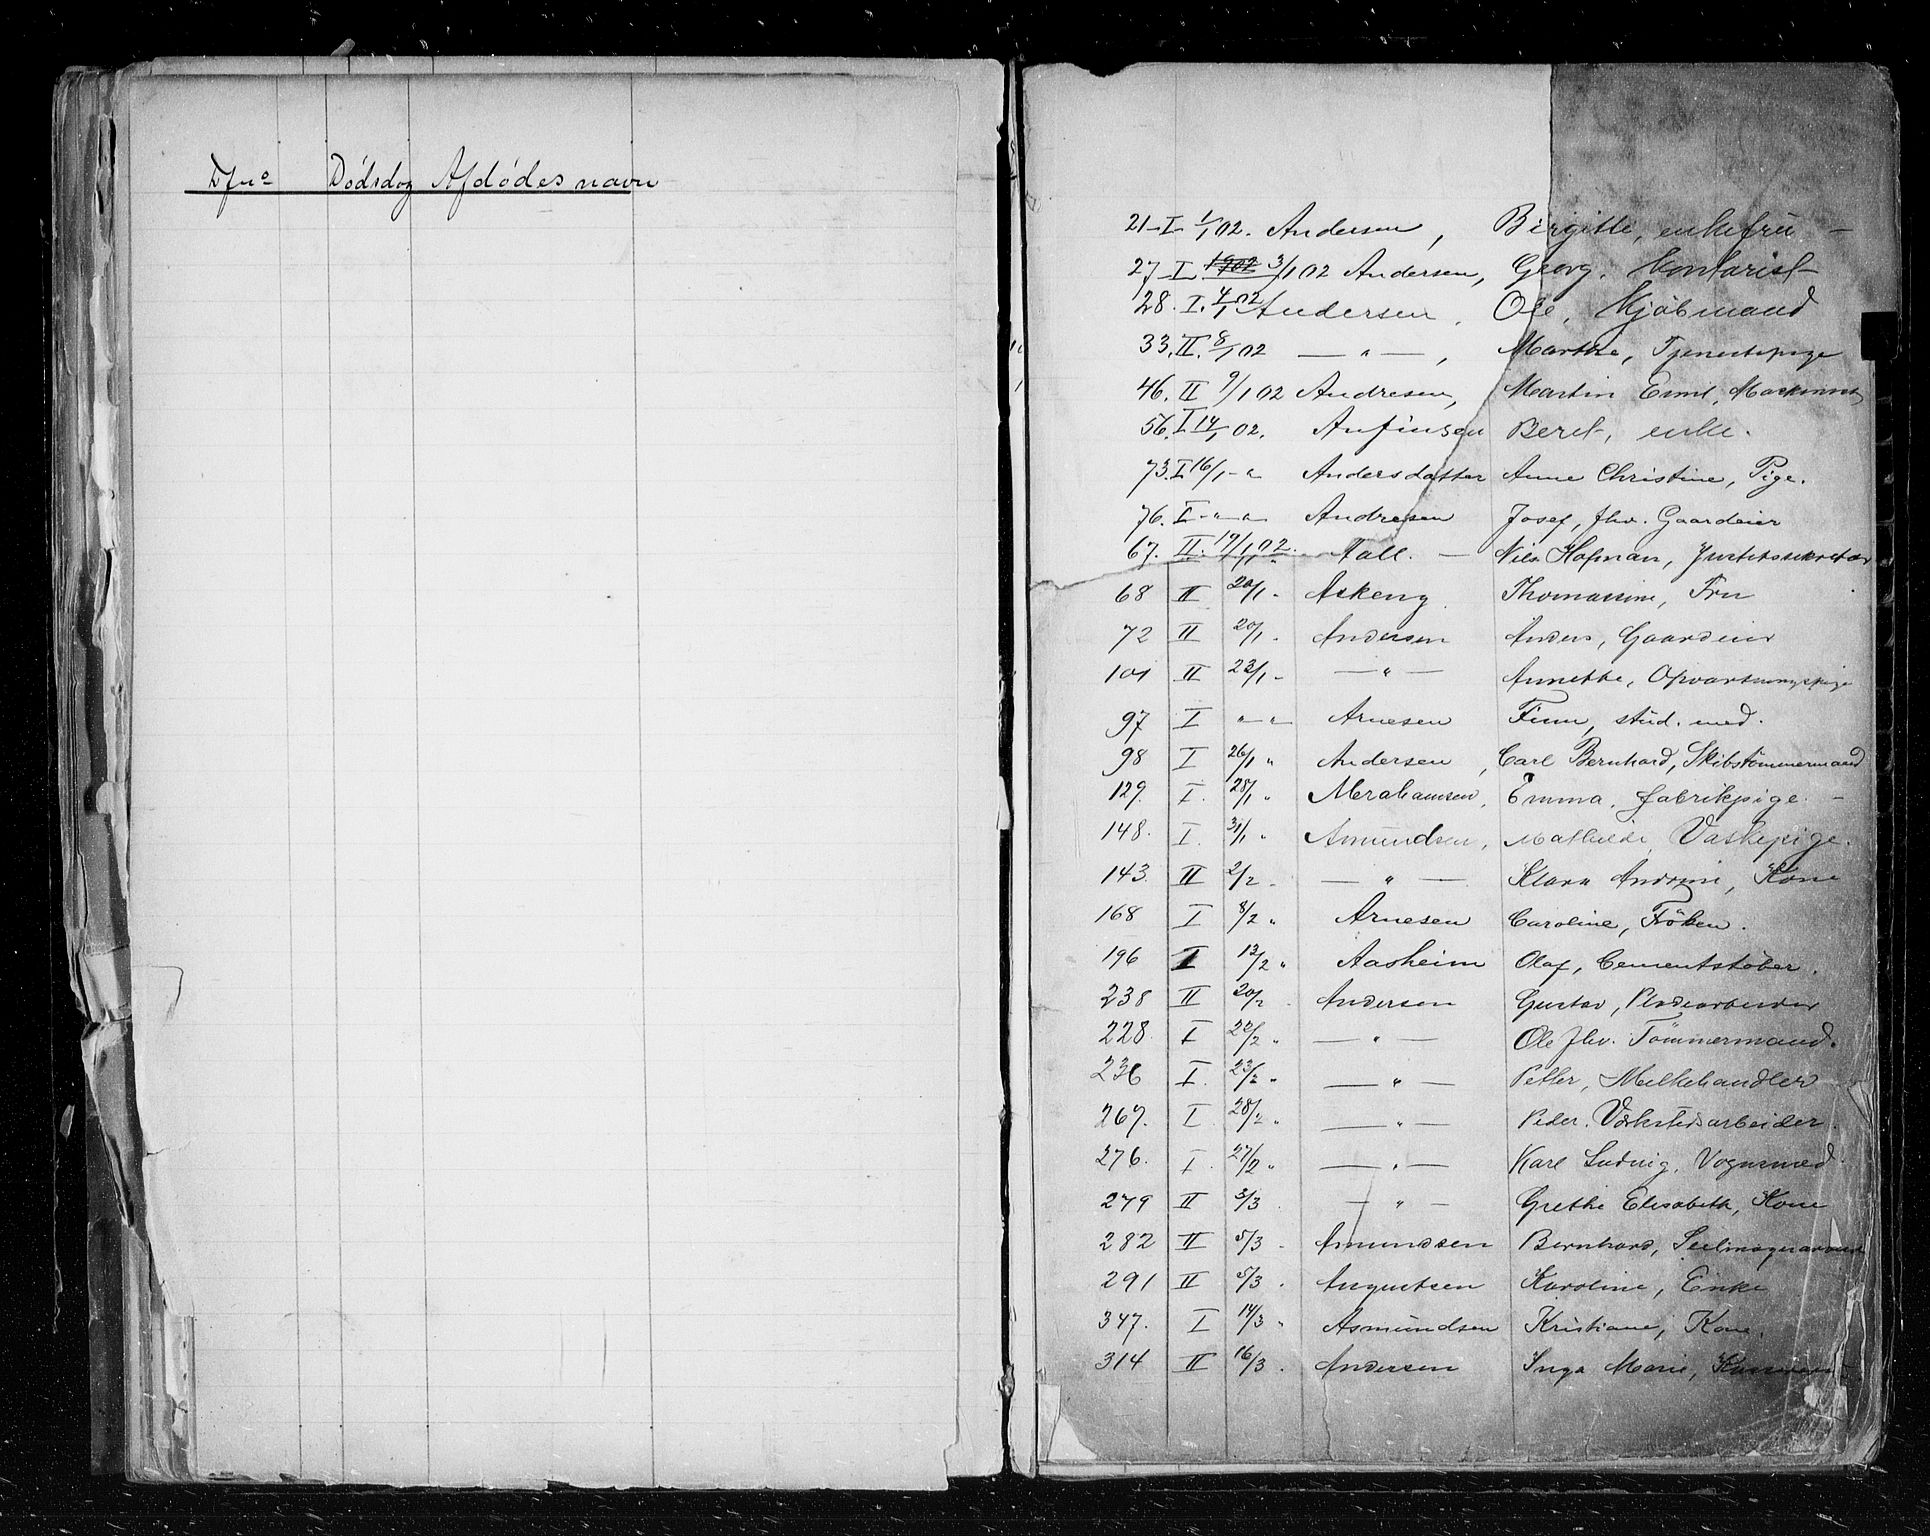 Dødsdag Afdødes navn
21-I 1/1 02. Andersen, Birgitte, enkefru -
27-I. 1902 3/1 02 Andersen, Georg. Kontorist
28. I. 4/1 02 Andersen, Ole, Kjøbmand
33. II. 8/1 02 — " —, Marthe, Tjenestepige
46. II 9/1 02 Andresen, Martin Emil, Maskinist
56. I 14/1 02. Anfinsen Beret, enke.
73. I 16/1 - " Andersdatter Anne Christine, Pige.
76. I - " " Andresen Josef, fhv. Gaardeier
67. II. 19/1 02. Aall. — Nils Hofman, Justitssekretær
68 II 20/1 - Askeng Thomassine, Fru
72 II 20/1 - Andersen Anders, Gaardeier
101 II 23/1 - — " — Annette, Opvartningspige
97 I " " Arnesen Finn, stud. med.
98 I 26/1 " Andersen, Carl Bernhard, Skibstømmermand
129. I. 28/1 " Abrahamsen, Emma, fabrikpige. -
148. I. 31/1 " Asmundsen, Mathilde, Vaskepige.
143. II 2/2 - — " — Klara Andrine, Kone
168 I 8/2 " Arnesen Caroline, Frøken.
196 I 13/2 " Aasheim Olaf, Cementstøber.
238 II 20/2 . Andersen Gustav, Pladsarbeider
228 I 22/2 " — " — Ole fhv. Tømmermand.
236 I. 23/2 " — " — Petter, Melkehandler
267. I. 28/2 " — " — Peder. Værkstedsarbeider.
276. I. 27/2 " — " — Karl Ludvig, Vognmed.
279 II 3/3 . — " — Grethe Elisabeth, Kone
282 II 5/3 - Amundsen Bernhard,
291 II 5/3 . Augustsen Karoline, Enke
347. I 14/3 " Asmundsen Kristiane, Kone.
314 II 16/3 . Andersen Inga Marie,